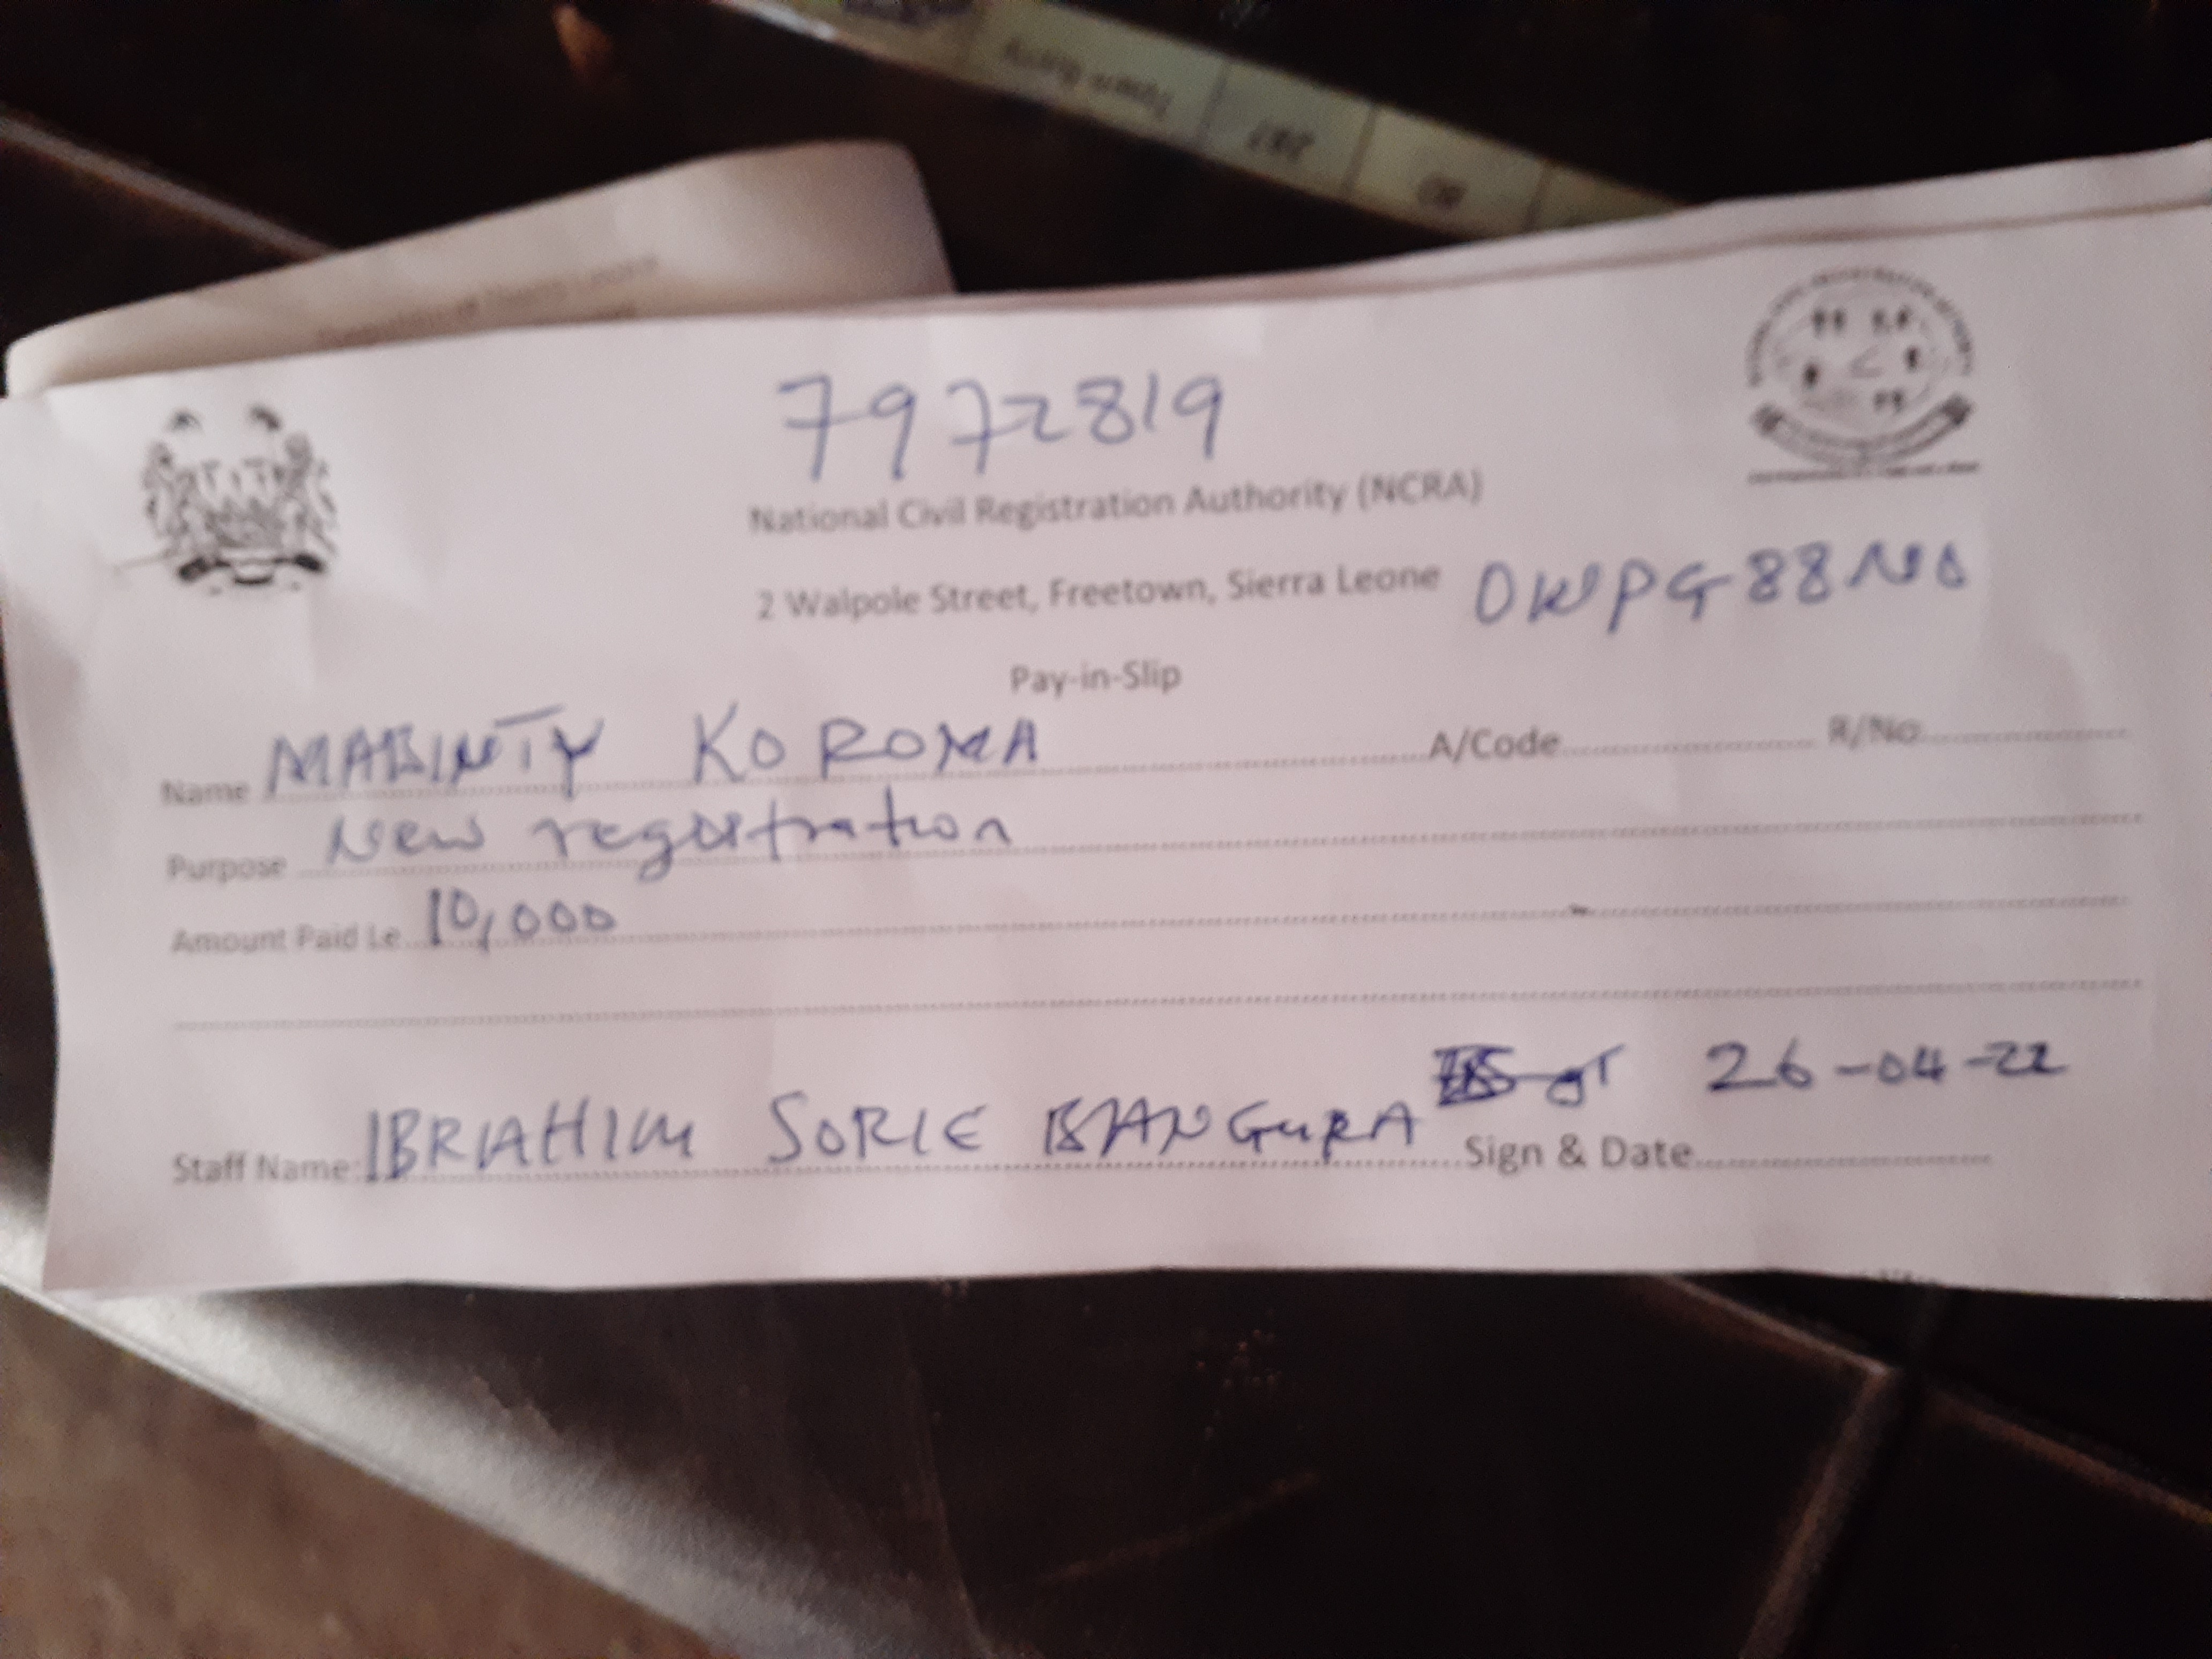 7972819
National Civil Registration Authority (NCRA)
2 Walpole Street, Freetown, Sierra Leone
Pay-in-Slip
Name MARINTY KOROMA A/Code R/No.
Purpose New registration
Amount Paid Le 10,000
26-04-22
Staff Name: IBRAHIM SORIE BANGURA Sign & Date